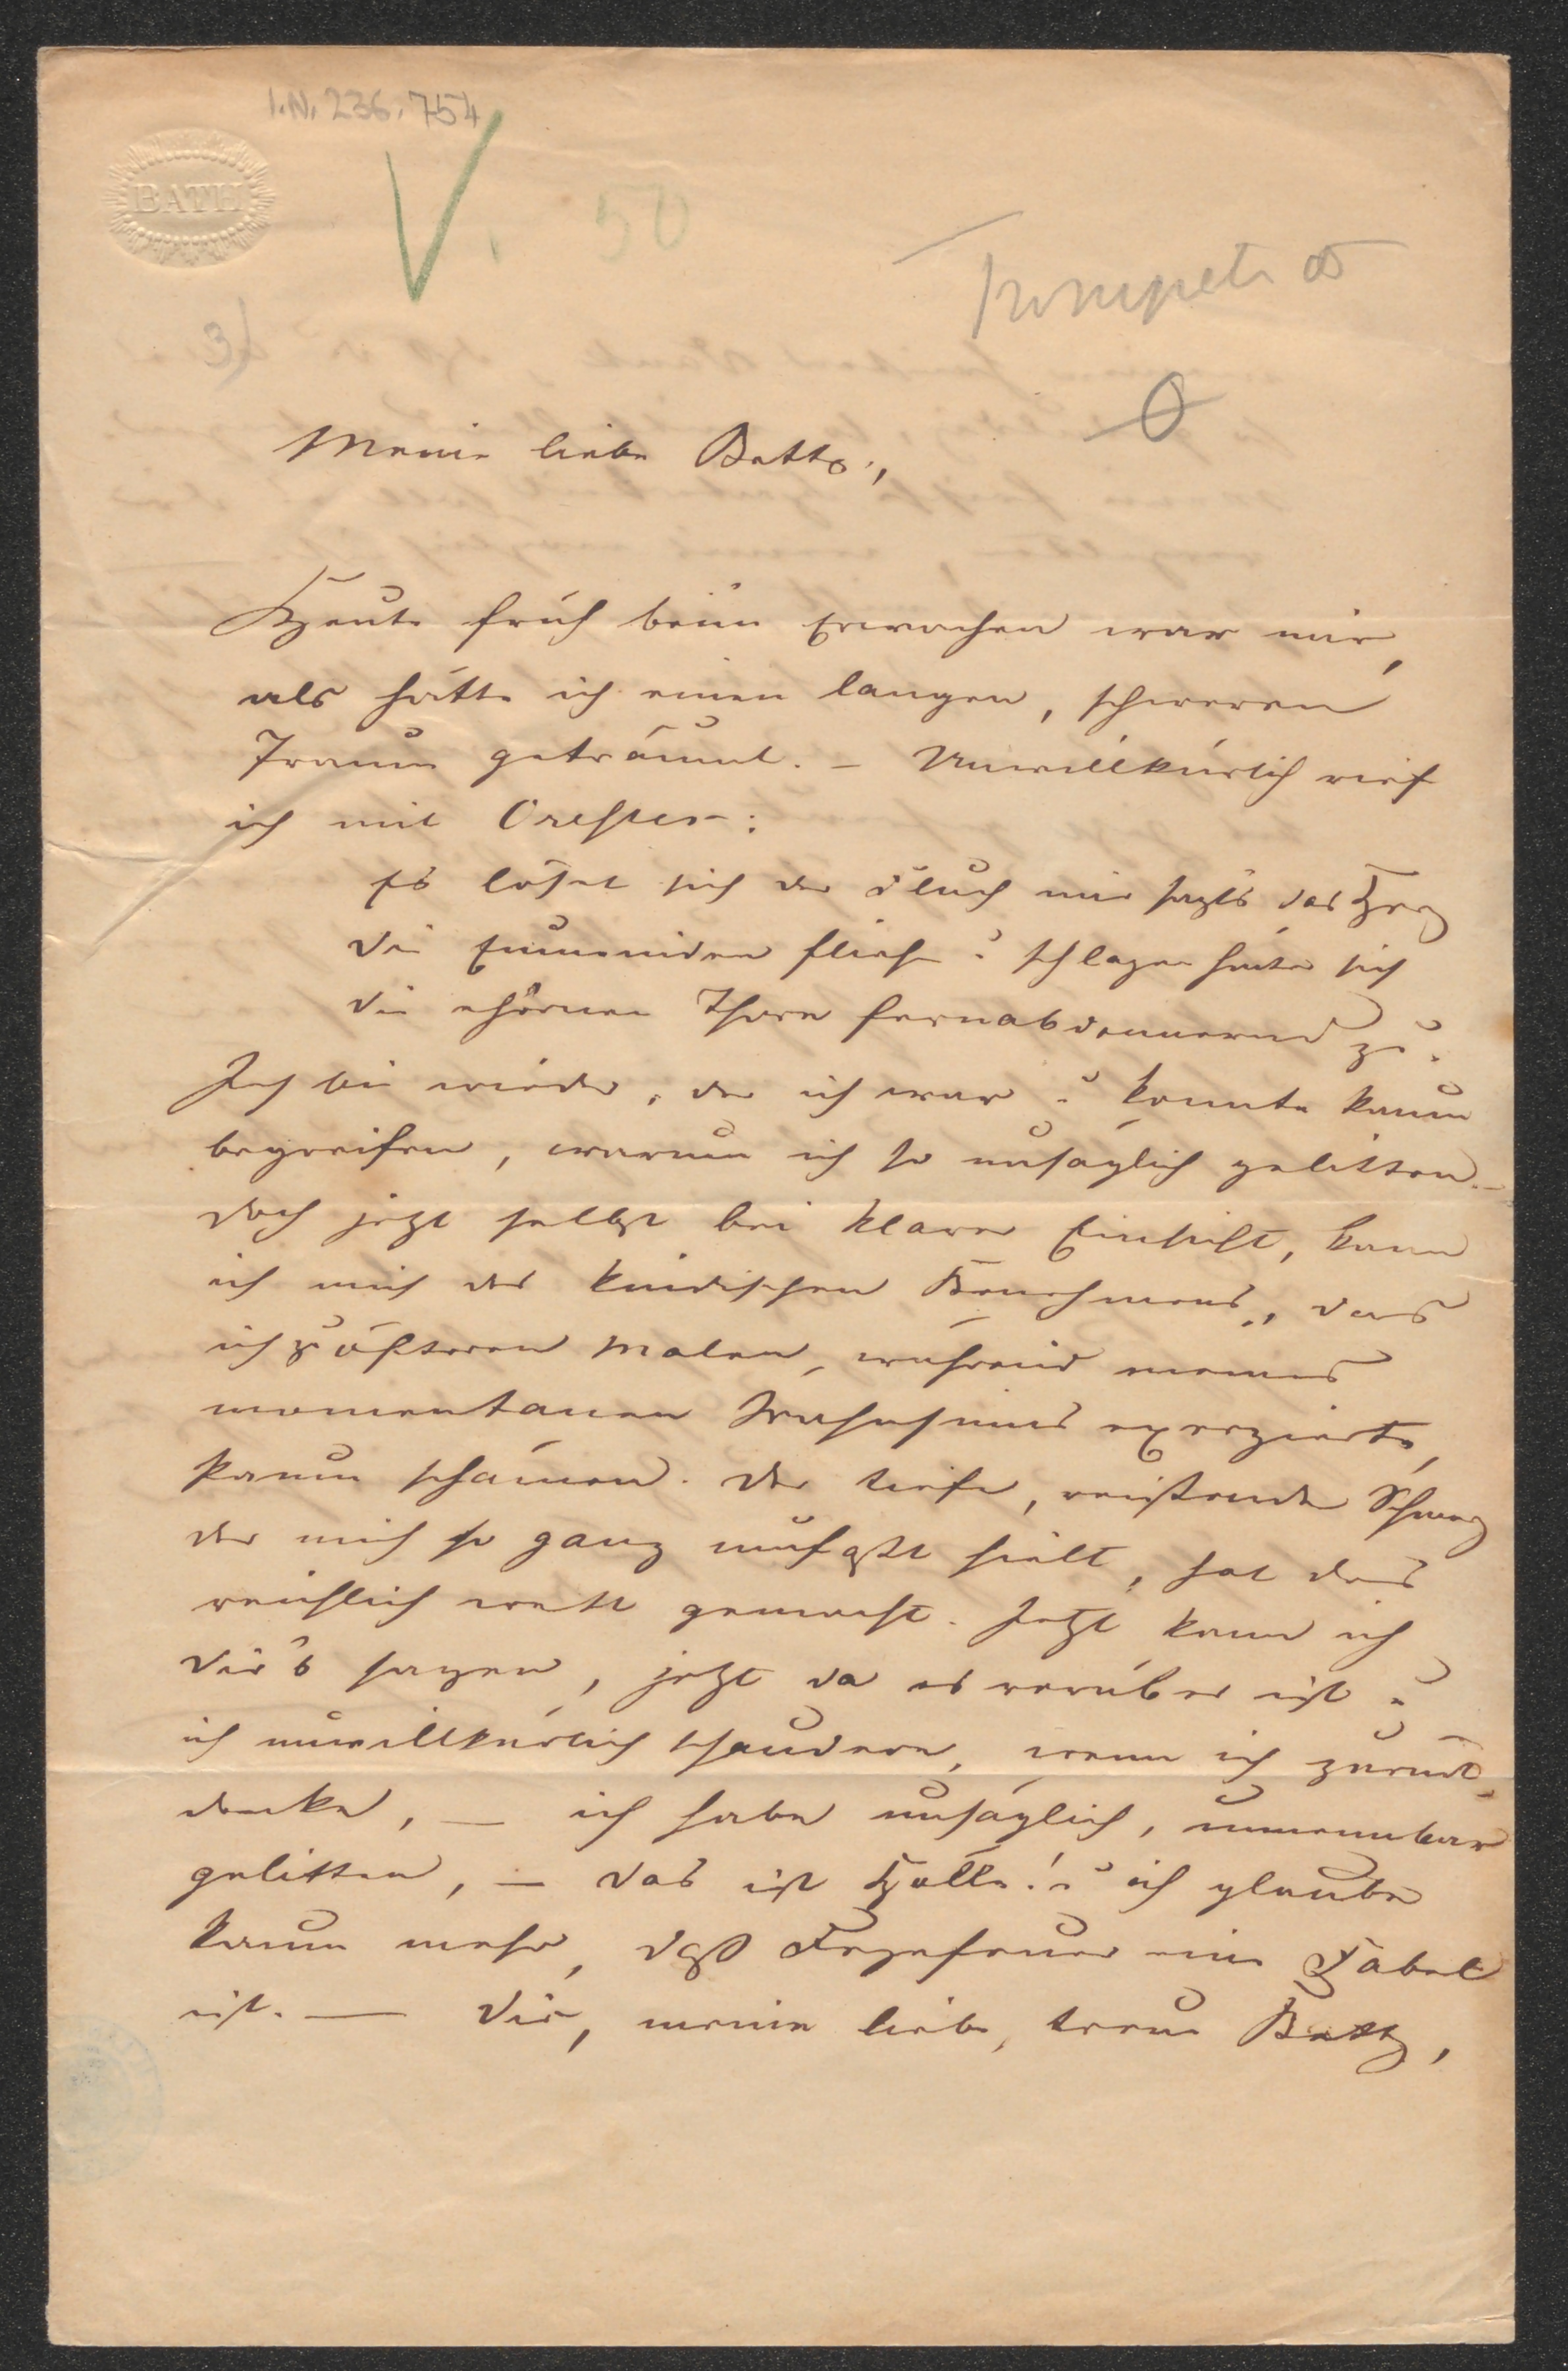 I.N. 236.754
BATH
V. 50
3)
Meine liebe Betty,
Heute früh beim Erwachen war mir,
als hätte ich einen langen, schweren
Traum geträumt. – Unwillkürlich rief
ich mit Orestes:
Es löset sich der Fluch mir sagts das Herz
die Eumeniden fliehn u schlagen hinter sich
die ehernen Thore fernabdonnernd zu.
Ich bin wieder, der ich war u konnte kaum
begreifen, warum ich so unsäglich gelitten. –
Doch jetzt selbst bei klarer Einsicht, kann
ich mich des kindischen Benehmens, das
ich zu öfteren Malen, während meines
momentanen Irrsinns exerzierte,
kaum schämen. Der tiefe, reißende Schmerz
der mich so ganz umfaßt hielt, hat das
reichlich wett gemacht. Jetzt kann ich
dir's sagen, jetzt da es vorüber ist u
ich unwillkürlich schaudere, wenn ich zurück-
denke, – ich habe unsäglich, unnennbar
gelitten, – das ist Hölle! u ich glaube
kaum mehr, daß Fegefeuer eine Fabel
ist. – Dir, meine liebe, treue Betty,